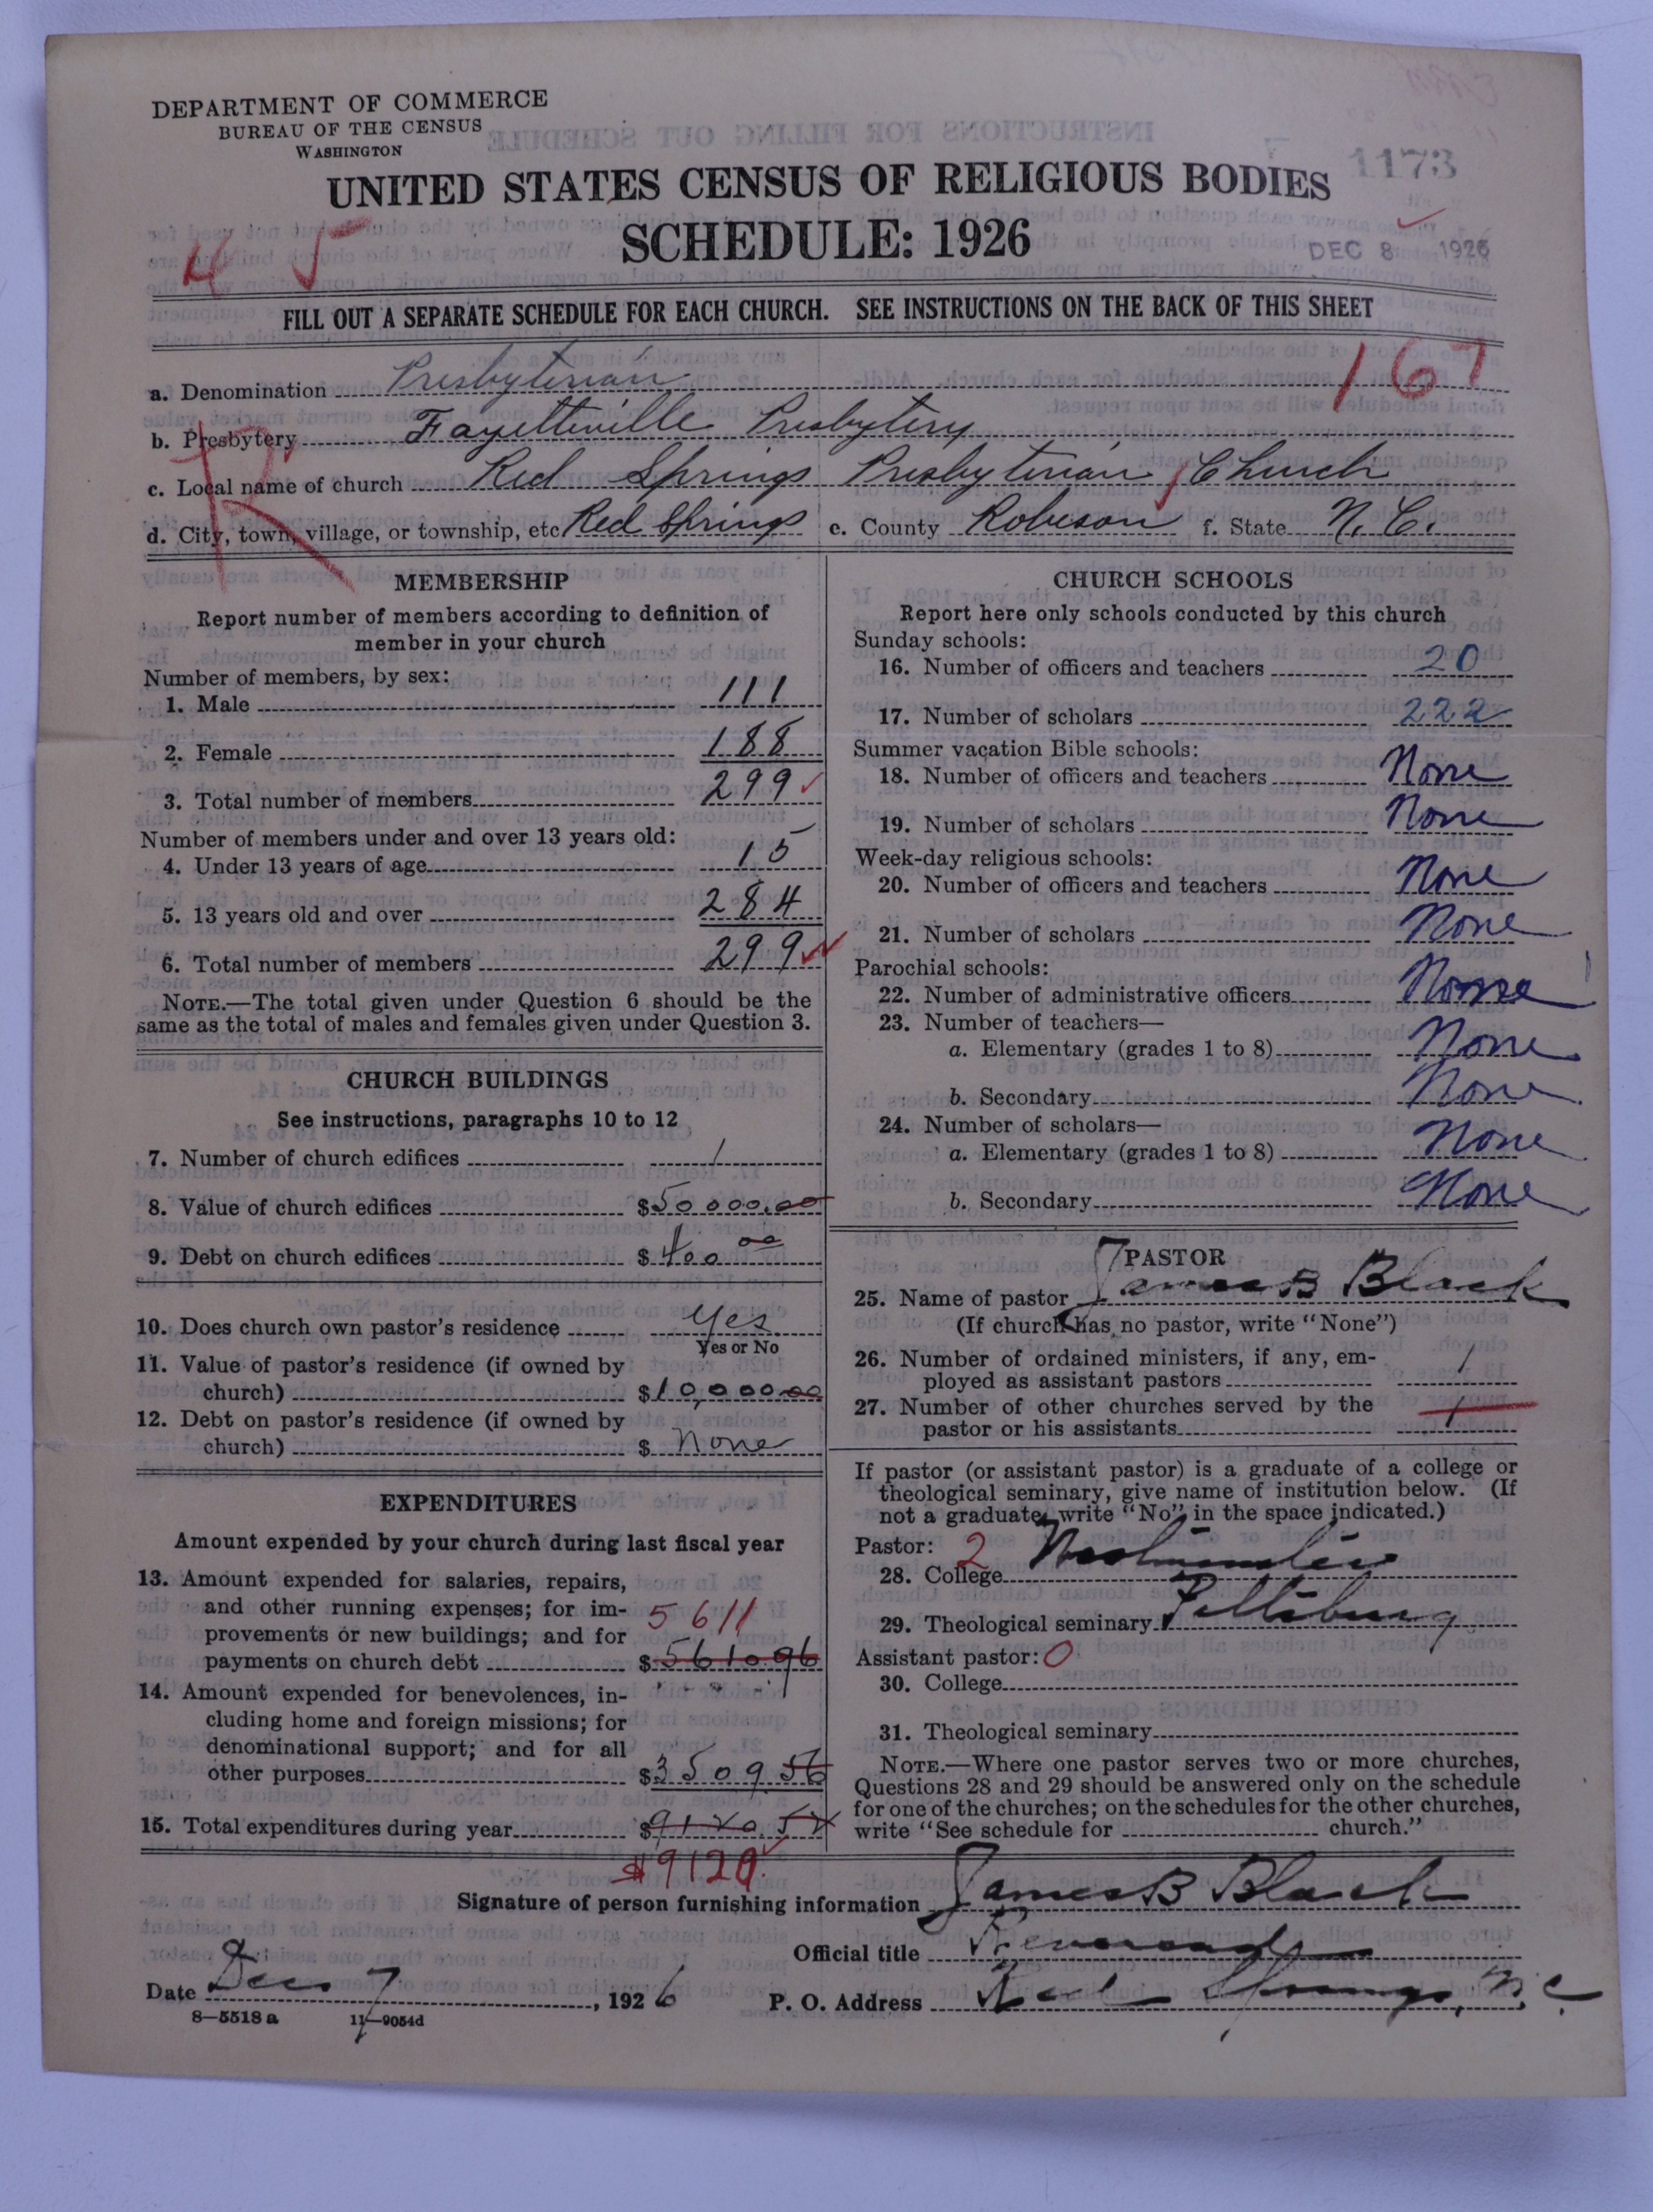 DEPARTMENT OF COMMERCE
BUREAU OF THE CENSUS
WASHINGTON
1173
UNITED STATES CENSUS OF RELIGIOUS BODIES
SCHEDULE: 1926
DEC 8 1926
4 5
FILL OUT A SEPARATE SCHEDULE FOR EACH CHURCH. SEE INSTRUCTIONS ON THE BACK OF THIS SHEET
167
a. Denomination Presbyterian
b. Presbytery Fayetteville Presbytery
c. Local name of church Red Springs Presbyterian Church
R
d. City, town, village, or township, etc Red Springs e. County Robeson f. State N. C.
MEMBERSHIP
Report number of members according to definition of
member in your church
Number of members, by sex:
1. Male 111
2. Female 188
3. Total number of members 299
Number of members under and over 13 years old:
4. Under 13 years of age 15
5. 13 years old and over 284
6. Total number of members 299
NOTE.—The total given under Question 6 should be the
same as the total of males and females given under Question 3.
CHURCH BUILDINGS
See instructions, paragraphs 10 to 12
7. Number of church edifices 1
8. Value of church edifices $50000.00
9. Debt on church edifices $400 00
10. Does church own pastor's residence yes
Yes or No
11. Value of pastor's residence (if owned by
church) $10,000 00
12. Debt on pastor's residence (if owned by
church) $ none
EXPENDITURES
Amount expended by your church during last fiscal year
13. Amount expended for salaries, repairs,
and other running expenses; for im-
provements or new buildings; and for
5611
payments on church debt $5610.96
14. Amount expended for benevolences, in-
cluding home and foreign missions; for
denominational support; and for all
other purposes $3509 56
15. Total expenditures during year $9120.52
$9120
CHURCH SCHOOLS
Report here only schools conducted by this church
Sunday schools:
16. Number of officers and teachers 20
17. Number of scholars 222
Summer vacation Bible schools:
18. Number of officers and teachers None
19. Number of scholars None
Week-day religious schools:
20. Number of officers and teachers None
21. Number of scholars None
Parochial schools:
22. Number of administrative officers None
23. Number of teachers—
a. Elementary (grades 1 to 8) None
b. Secondary None
24. Number of scholars—
a. Elementary (grades 1 to 8) None
b. Secondary None
PASTOR
25. Name of pastor James B Black
(If church has no pastor, write "None")
26. Number of ordained ministers, if any, em-
ployed as assistant pastors 1
27. Number of other churches served by the
pastor or his assistants 1
If pastor (or assistant pastor) is a graduate of a college or
theological seminary, give name of institution below. (If
not a graduate, write "No" in the space indicated.)
Pastor: 2
28. College Westminster
29. Theological seminary Pittsburg
Assistant pastor: 0
30. College
31. Theological seminary
NOTE.—Where one pastor serves two or more churches,
Questions 28 and 29 should be answered only on the schedule
for one of the churches; on the schedules for the other churches,
write "See schedule for church."
Signature of person furnishing information James B Black
Official title Reverend
Date Dec 7, 1926 P. O. Address Red Springs, N. C.
8—5518 a 11—9054d